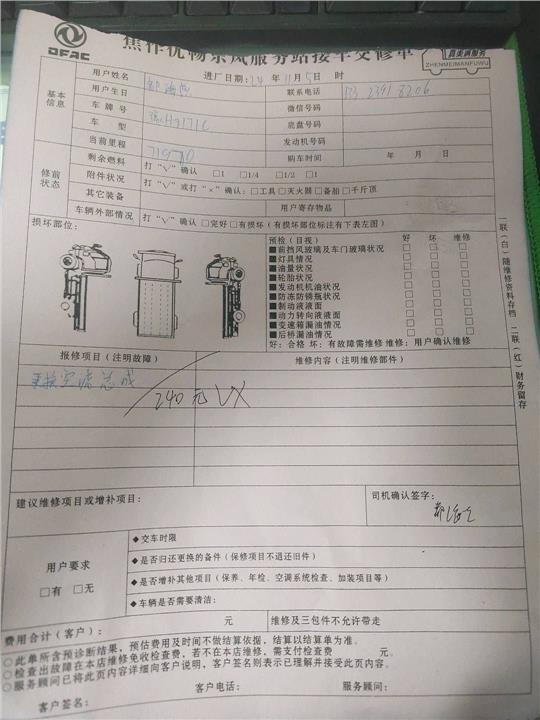 DFAC
焦作优畅东风服务站接车交修单
真美满服务
ZHENMEIMANFUWU
用户姓名 进厂日期: 24 年 11 月 5 日 时
基本信息
用户生日 联系电话
车牌号 微信号码
车型 底盘号码
当前里程 发动机号码
剩余燃料 打“√”确认 □1 □1/4 □1/2 □1 购车时间 年 月 日
修前状态
附件状况 打“√”或打“×”确认: □工具 □灭火器 □备胎 □千斤顶
其它装备 用户寄存物品
车辆外部情况 打“√”确认 □完好 □有损坏 (有损坏部位标注有下表左图)
损坏部位:
预检(目视) 好 坏 维修
■前挡风玻璃及车门玻璃状况 □ □ □
■灯具情况 □ □ □
■油量状况 □ □ □
■轮胎状况 □ □ □
■发动机机油状况 □ □ □
■防冻防锈瓶状况 □ □ □
■制动液液面 □ □ □
■动力转向液液面 □ □ □
■变速箱漏油情况 □ □ □
■后桥漏油情况 □ □ □
好: 合格 坏: 有故障需维修 维修: 用户确认维修
报修项目(注明故障) 维修内容(注明维修部件)
更换空滤总成
240元
建议维修项目或增补项目:
司机确认签字:
用户要求
□有 □无
◆交车时限
◆是否归还更换的备件(保修项目不退还旧件)
◆是否增补其他项目(保养、年检、空调系统检查、加装项目等)
◆车辆是否需要清洁:
费用合计(客户): 元 维修及三包件不允许带走
○此单所含预诊断结果,预估费用及时间不做结算依据,结算以结算单为准。
○检查出故障在本店维修免收检查费,若不在本店维修,需支付检查费 元。
○服务顾问已将此页内容详细向客户说明,客户签名则表示已理解并接受此页内容。
客户签名: 客户电话: 服务顾问:
一联(白)随维修资料存档 二联(红)财务留存